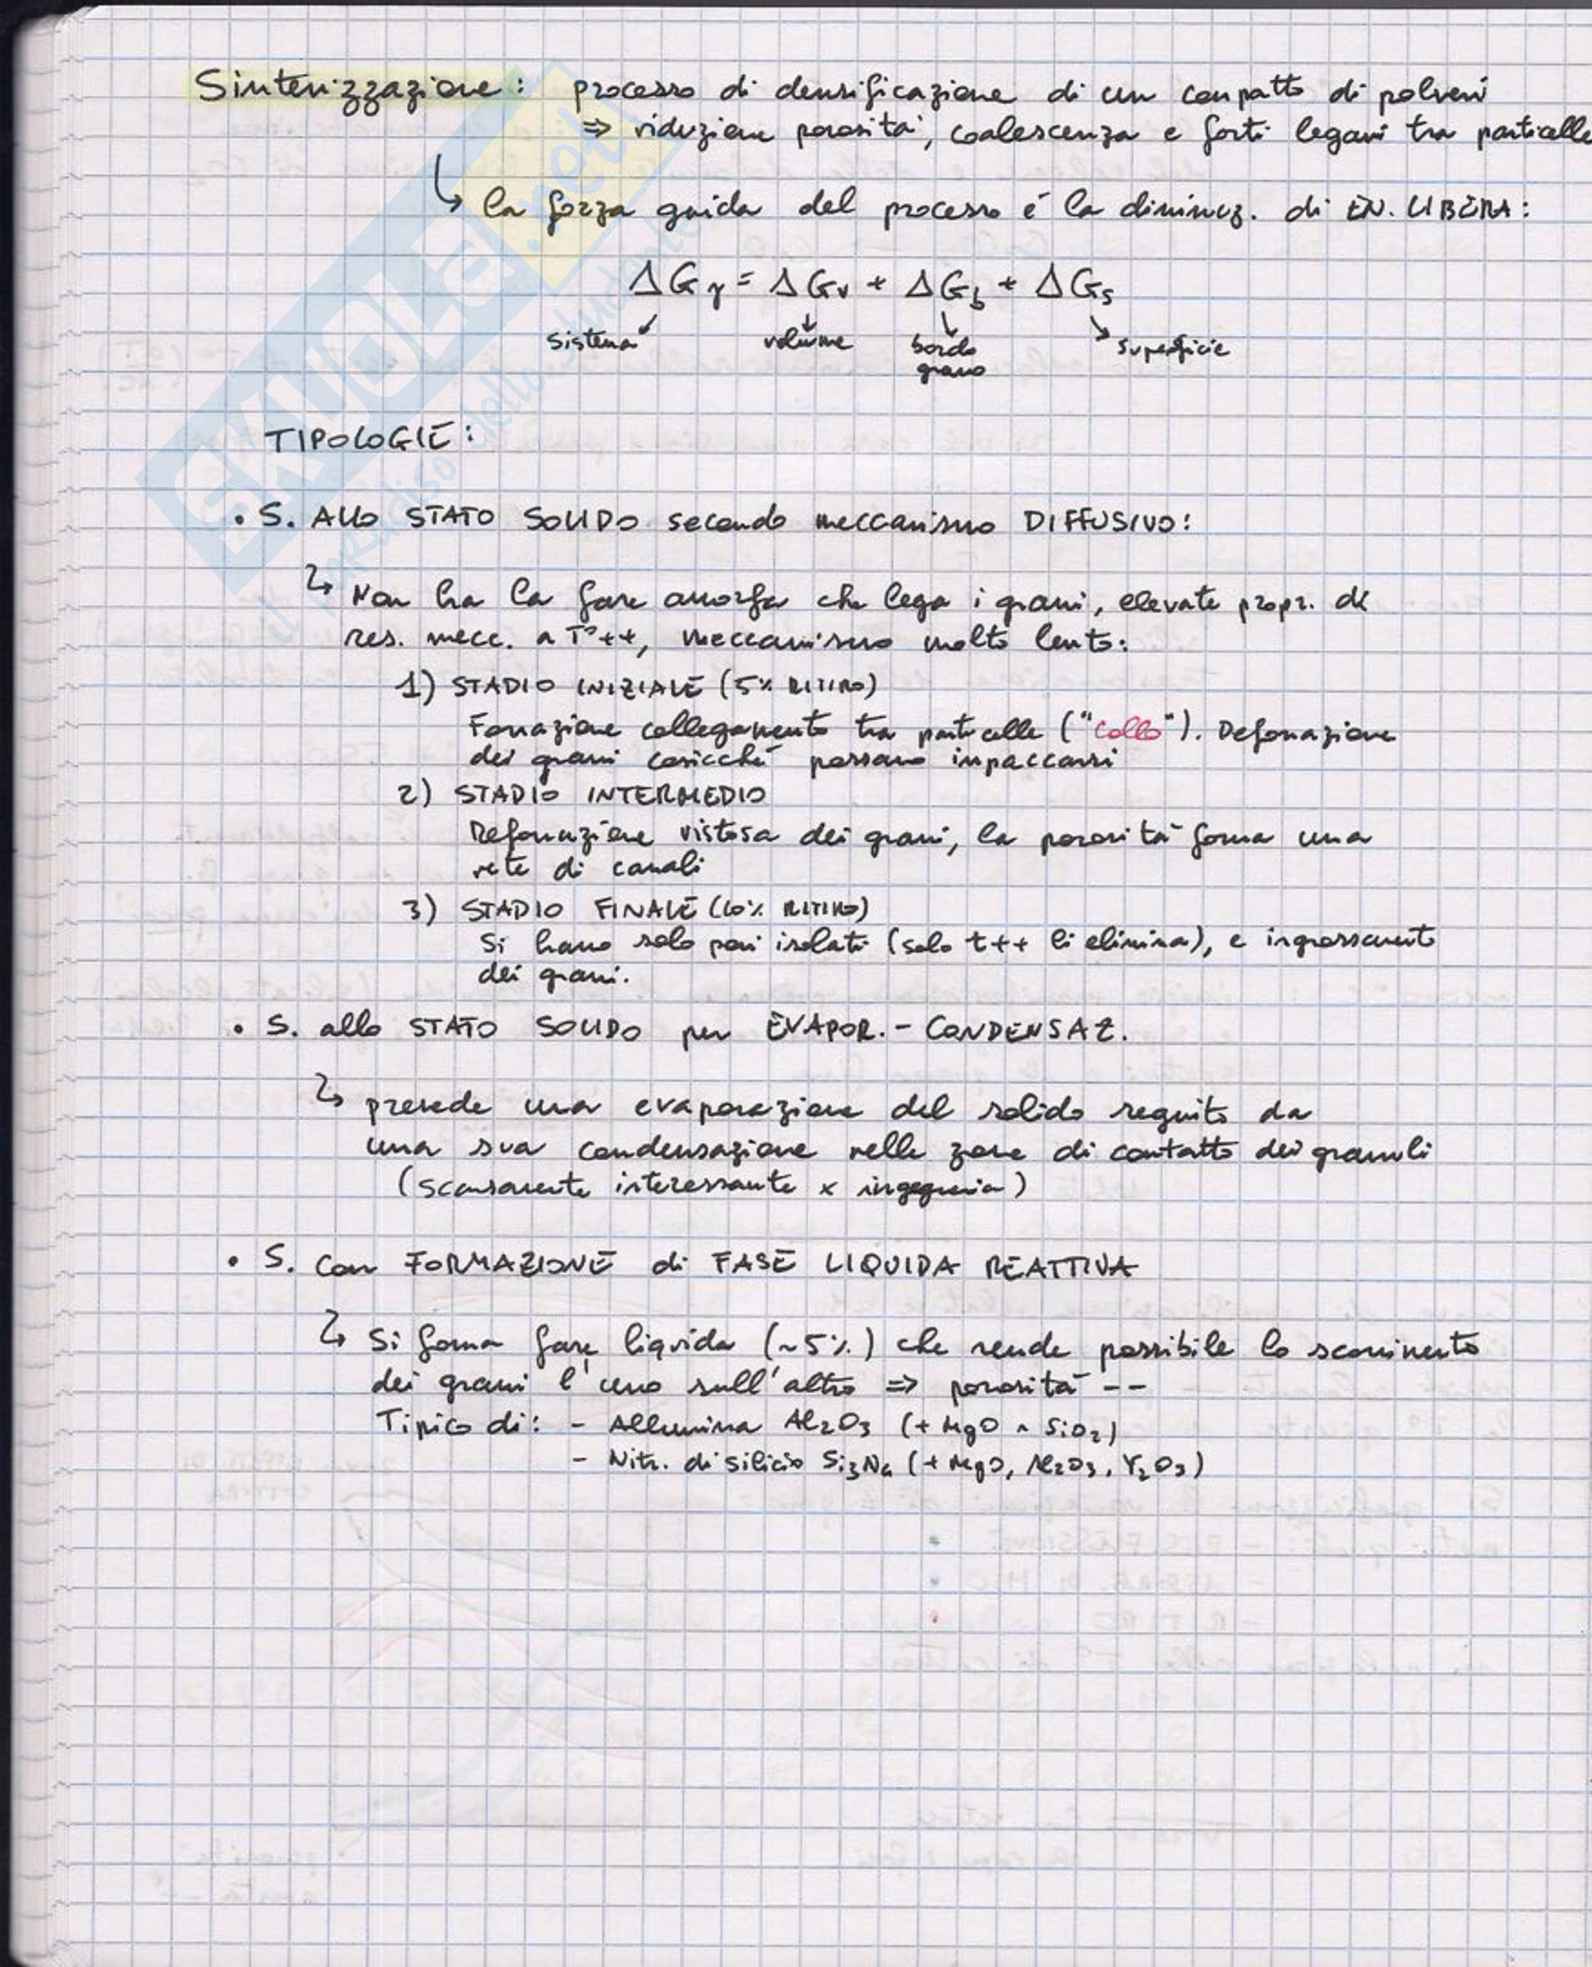 Sinterizzazione: processo di densificazione di un compatto di polveri
⇒ riduzione porosità, coalescenza e forti legami tra particelle
↳ la forza guida del processo é la diminuz. di EN. LIBERA:
ΔGγ = ΔGv + ΔGb + ΔGs
sistema volume bordo grano superficie
TIPOLOGIE:
• S. Allo STATO SOLIDO secondo meccanismo DIFFUSIVO:
↳ Non ha la fase amorfa che lega i grani, elevate propr. di
res. mecc. a T°++, meccanismo molto lento:
1) STADIO INIZIALE (5% RITIRO)
Formazione collegamento tra particelle ("collo"). Deformazione
dei grani cosicché possano impaccarsi
2) STADIO INTERMEDIO
Deformazione vistosa dei grani, la porosità forma una
rete di canali
3) STADIO FINALE (10% RITIRO)
Si hanno solo pori isolati (solo t++ li elimina), e ingrossamento
dei grani.
• S. allo STATO SOLIDO per EVAPOR. - CONDENSAZ.
↳ prevede una evaporazione del solido seguito da
una sua condensazione nelle zone di contatto dei granuli
(scarsamente interessante x ingegneria)
• S. con FORMAZIONE di FASE LIQUIDA REATTIVA
↳ Si forma fase liquida (~5%) che rende possibile lo scorrimento
dei grani l'uno sull'altro ⇒ porosità --
Tipico di: - Allumina Al2O3 (+ MgO ~ SiO2)
- Nitr. di silicio Si3N4 (+ MgO, Al2O3, Y2O3)
SKUOLA.net
il paradiso dello studente